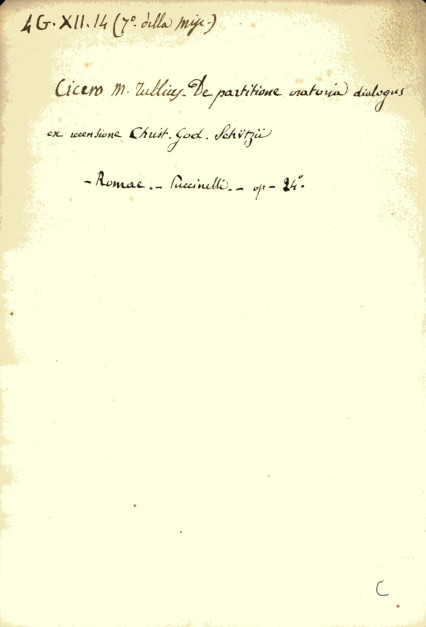 4 G. XII. 14 (7º. della Misc.)
Cicero M. Tullius. De partitione oratoria dialogus
ex recensione Christ. God. Schützii
- Romae. - Puccinelli. - op - 24º.
C